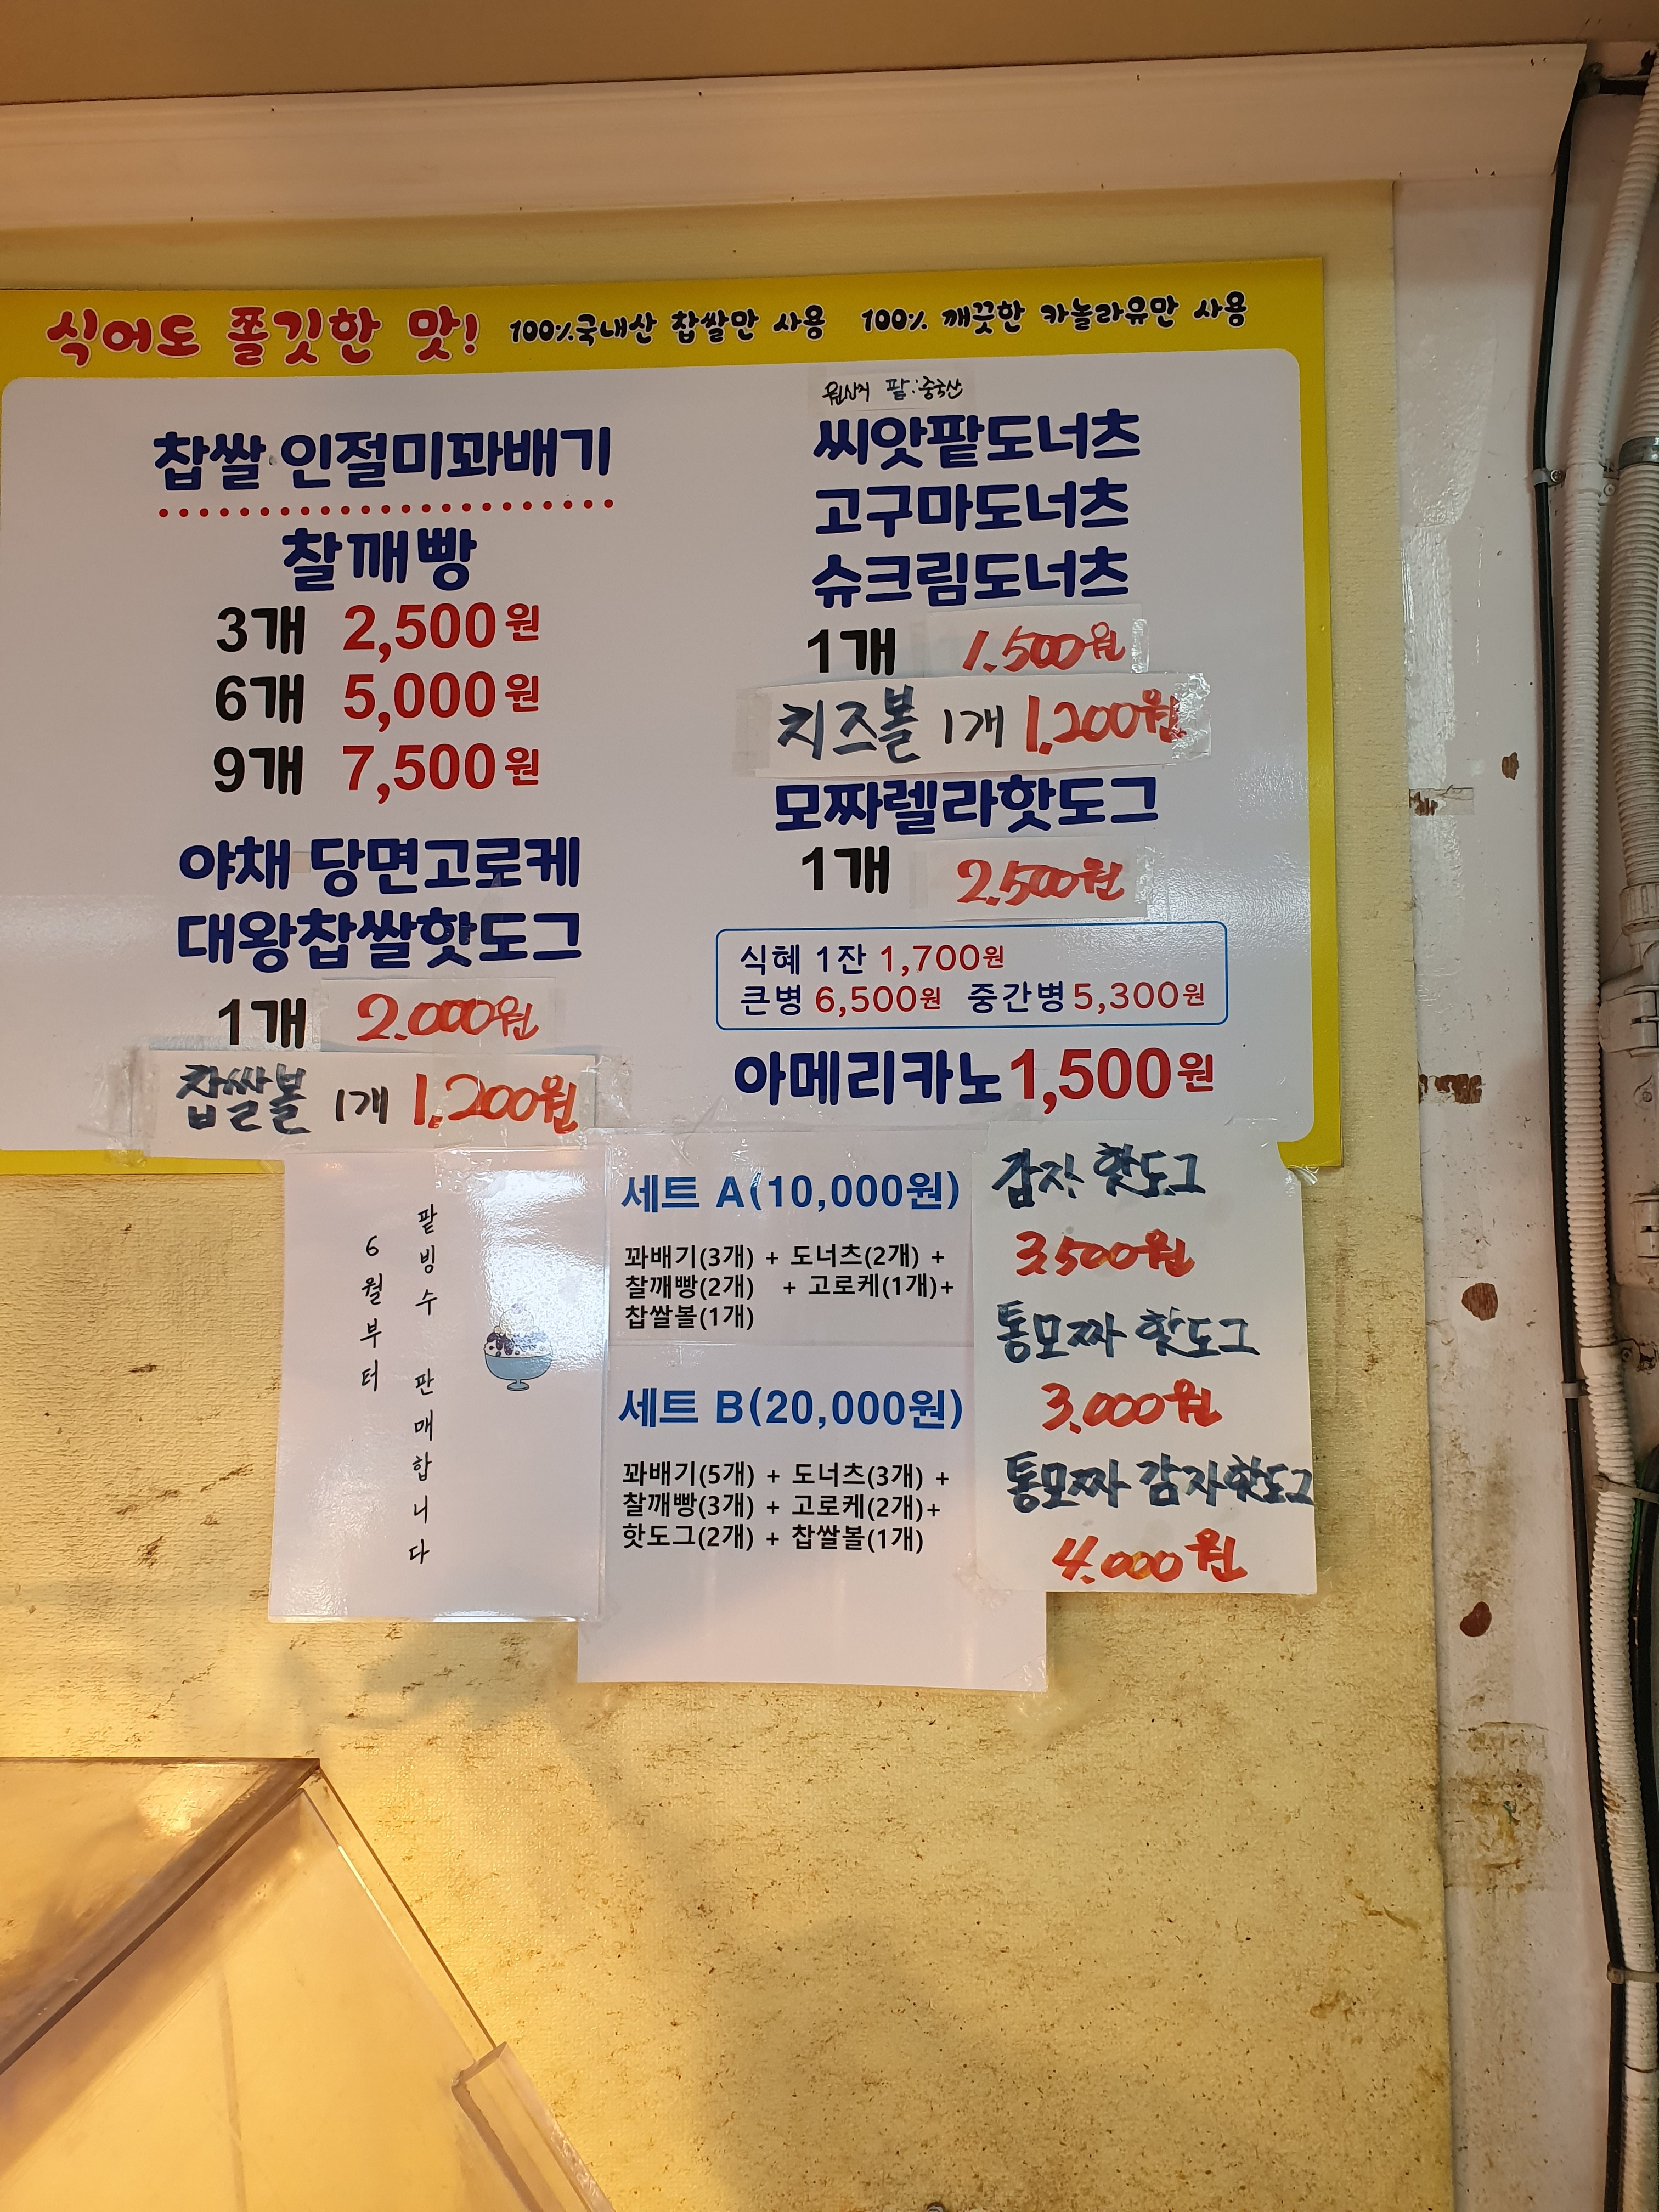 식어도 쫄깃한 맛! 100%국내산 찹쌀만 사용 100% 깨끗한 카놀라유만 사용
찹쌀 인절미꽈배기
찰깨빵
3개 2,500원
6개 5,000원
9개 7,500원
야채 당면고로케
대왕찹쌀핫도그
1개 2.000원
찹쌀볼 1개 1.200원
원산지 팥:중국산
씨앗팥도너츠
고구마도너츠
슈크림도너츠
1개 1.500원
치즈볼 1개 1.200원
모짜렐라핫도그
1개 2.500원
식혜 1잔 1,700원
큰병 6,500원 중간병 5,300원
아메리카노 1,500원
6월부터
팥빙수 판매합니다
세트 A(10,000원)
꽈배기(3개) + 도너츠(2개) +
찰깨빵(2개) + 고로케(1개)+
찹쌀볼(1개)
세트 B(20,000원)
꽈배기(5개) + 도너츠(3개) +
찰깨빵(3개) + 고로케(2개)+
핫도그(2개) + 찹쌀볼(1개)
감자 핫도그
3.500원
통모짜 핫도그
3.000원
통모짜 감자핫도그
4.000원